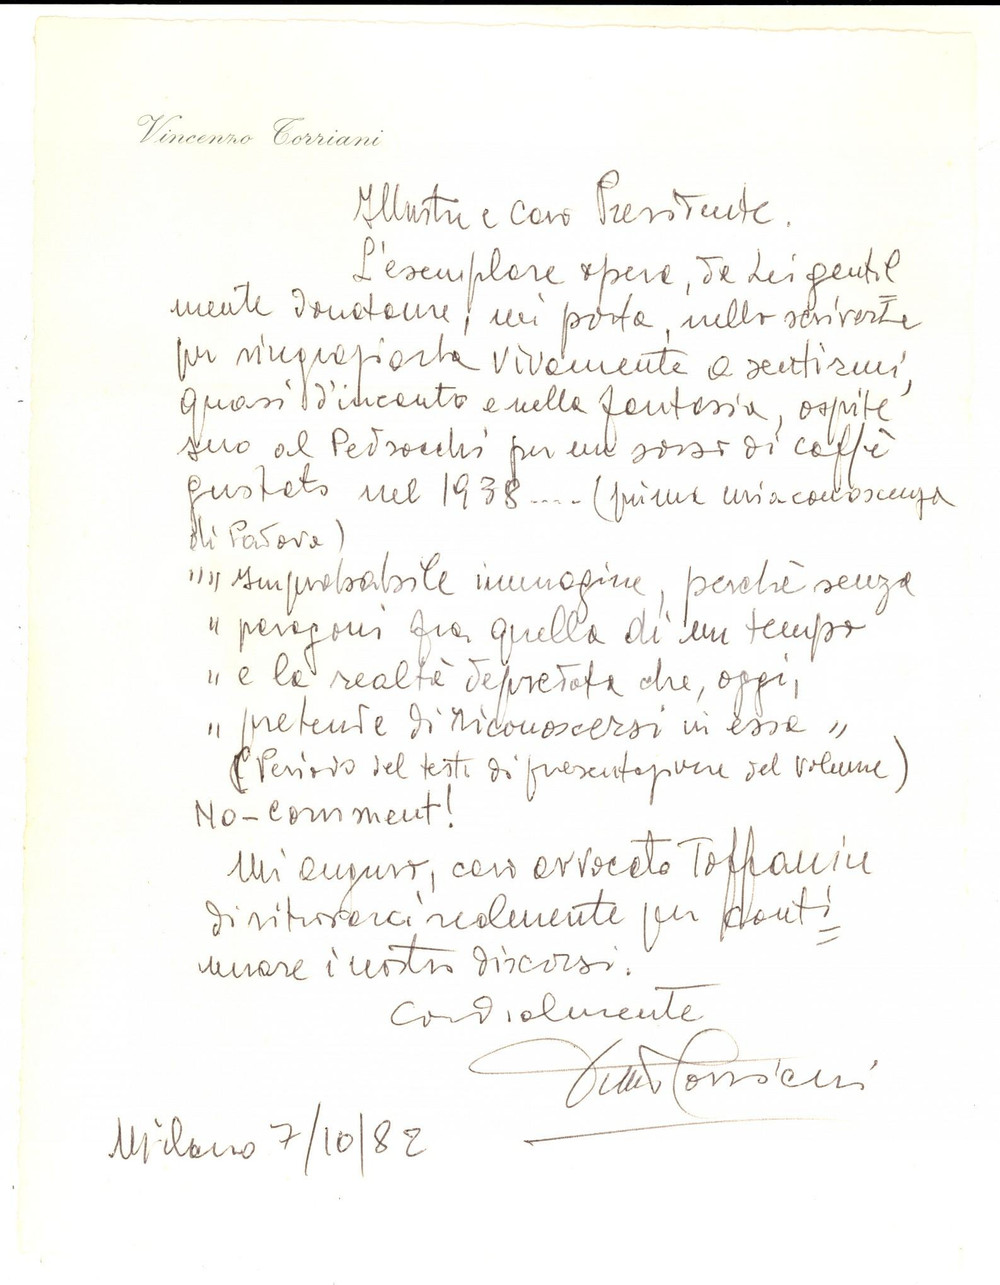 Vincenzo Torriani
Illustre e caro Presidente.
L'esemplare opera, da Lei gentil
mente donatami, mi porta, nello scriverLe
per ringraziarLa vivamente a sentirmi,
quasi d'incanto e nella fantasia, ospite
suo al Pedrocchi per un sorso di caffè
gustato nel 1938..... (prima mia conoscenza
di Padova)
"" Improbabile immagine, perchè senza
" paragoni fra quella di un tempo
" e la realtà depredata che, oggi,
" pretende di riconoscersi in essa "
(Periodo del testo di presentazione del volume)
No-comment!
Mi auguro, caro avvocato Toffanin
di ritrovarci realmente per conti
nuare i nostri discorsi.
Cordialmente
Torriani
Milano 7/10/82